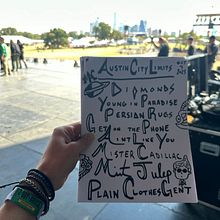 Austin City Limits
Diamonds
Young in Paradise
Persian Rugs
Get on the Phone
Ain't Like You
Mister Cadillac
Mint Julep
Plain Clothes Gent